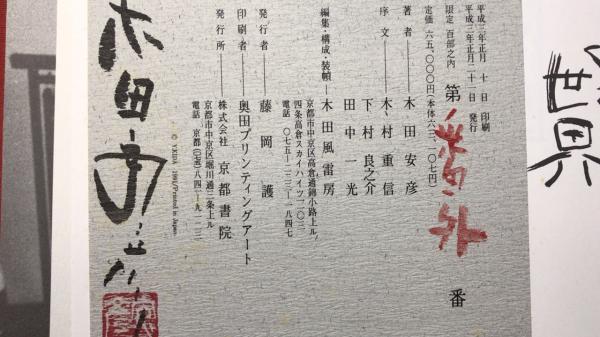 世界
平成三年正月 十 日 印刷
平成三年正月二十一日 発行
限定 百部之内 第 番外 番
定価 六五、〇〇〇円(本体六三、一〇七円)
著者 ─ 木田安彦
序文 ─ 木村重信
下村良之介
田中一光
編集・構成・装幀 ─ 木田風雷房
京都市中京区高倉通錦小路上ル
四条高倉スカイハイツ一二〇三
電話 〇七五―二二三―一八四七
発行者 ─ 藤岡 護
印刷者 ─ 奥田プリンティングアート
発行所 ─ 株式会社 京都書院
京都市中京区堀川通三条上ル
© Y.KIDA 1991/Printed in Japan.
木田安